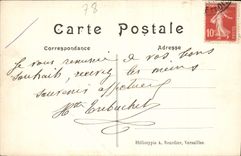 78
Carte Postale
Correspondance
Adresse
10
Je vous remercie de vos bons
souhaits, recevez les miens
souvenir affectueux
Héliotypie A. Bourdier, Versailles